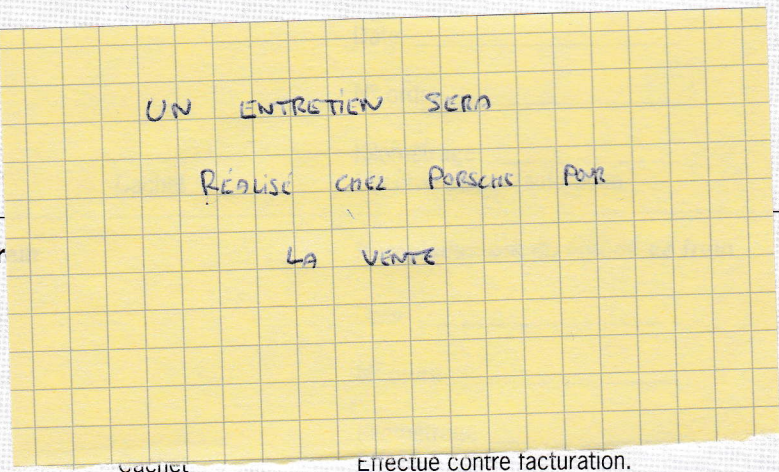 UN ENTRETIEN SERA
RÉALISÉ CHEZ PORSCHE POUR
LA VENTE
Cachet Effectué contre facturation.